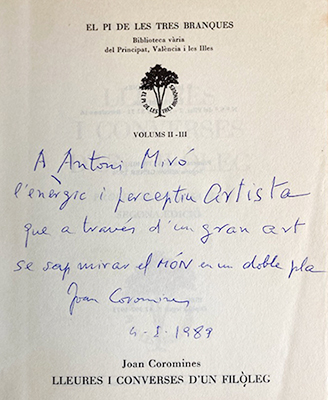 EL PI DE LES TRES BRANQUES
Biblioteca vària
del Principat, València i les Illes
EL PI DE LES TRES BRANQUES
VOLUMS II-III
A Antoni Miró
l'enèrgic i perceptiu artista
que a través d'un gran art
se sap mirar el MÓN en un doble pla
Joan Coromines
4-I-1989
Joan Coromines
LLEURES I CONVERSES D'UN FILÒLEG